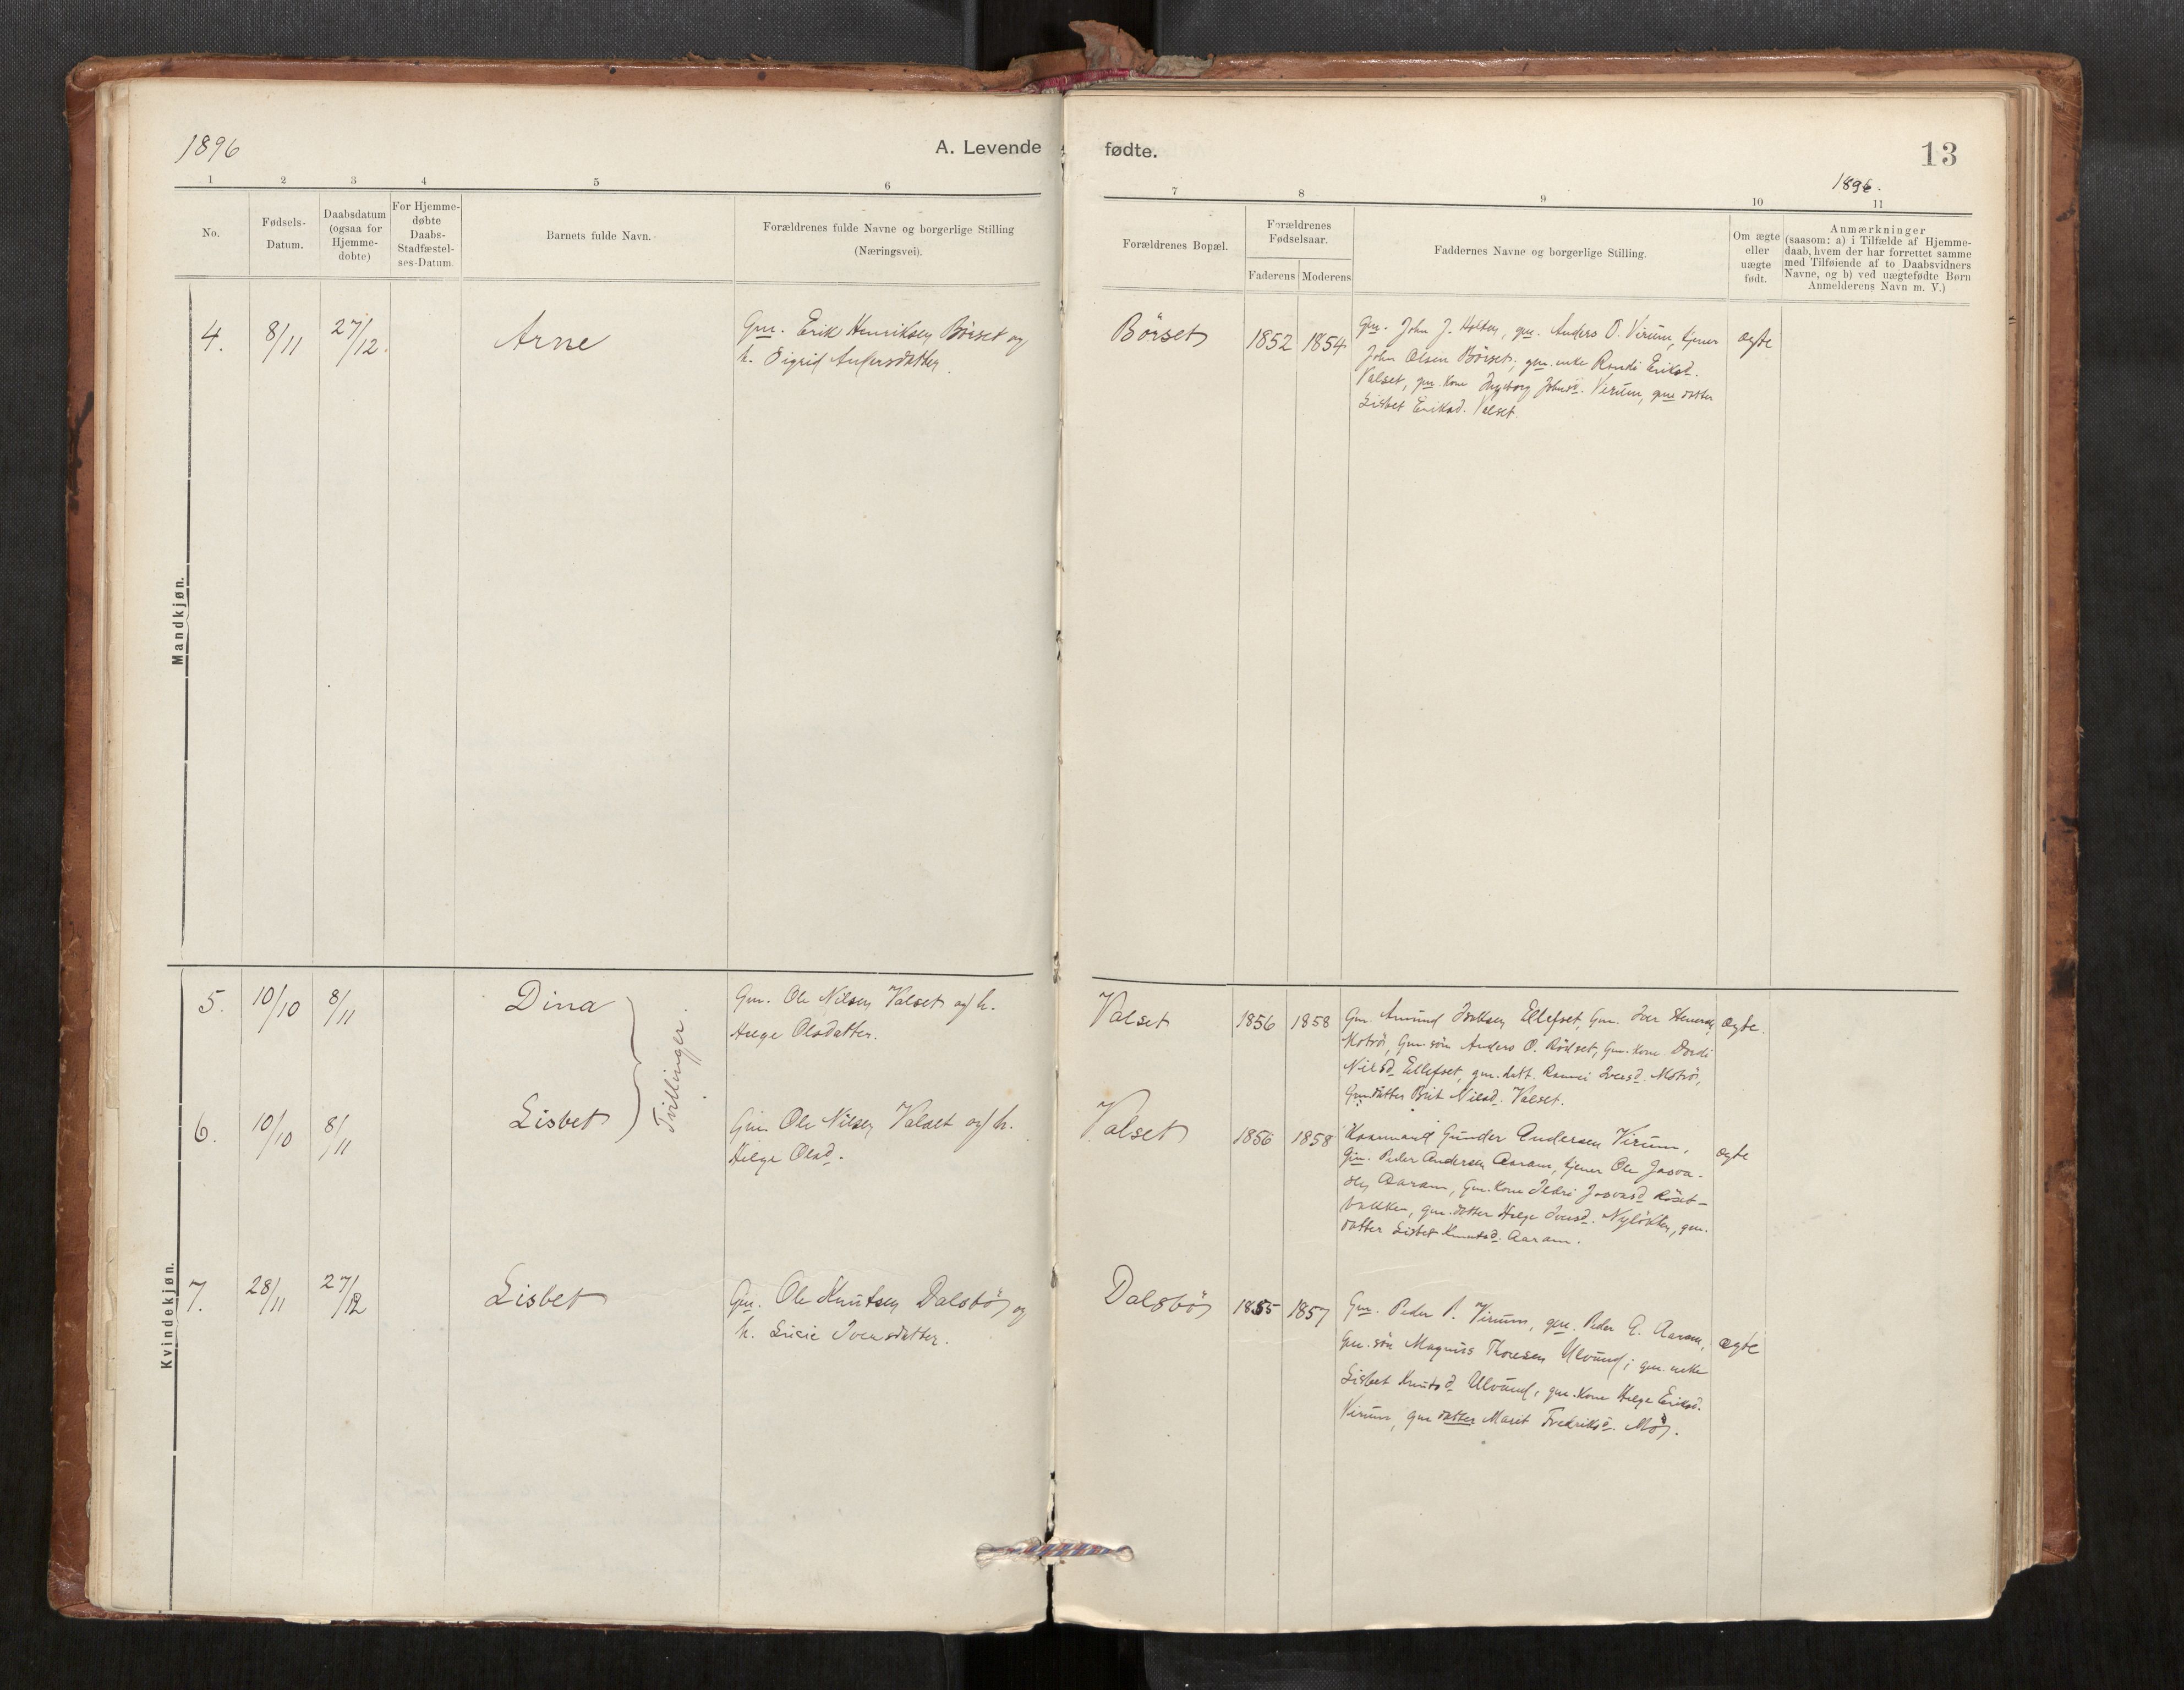 1896
A. Levende
fødte.
13
1896.
1 2 3 4 5 6
7 8 9 10 11
No.
Fødsels-
Datum.
Daabsdatum
(ogsaa for
Hjemme-
døbte)
For Hjemme-
døbte
Daabs-
Stadfæstel-
ses-Datum.
Barnets fulde Navn.
Forældrenes fulde Navne og borgerlige Stilling
(Næringsvei).
Forældrenes Bopæl.
Forældrenes
Fødselsaar.
Faderens Moderens
Faddernes Navne og borgerlige Stilling.
Om ægte
eller
uægte
født.
Anmærkninger
(saasom: a) i Tilfælde af Hjemme-
daab, hvem der har forrettet samme
med Tilføiende af to Daabsvidners
Navne, og b) ved uægtefødte Børn
Anmelderens Navn m. V.)
Mandkjøn.
4. 8/11 27/12. Arne
Gm. Erik Henriksen Börset og
h. Sigrid Andersdatter.
Börset 1852 1854
Gm. John J. Holten, gm. Anders O. Virum, tjener
John Olsen Börset, gm. enke Randi Eriksd.
Valset, gm. kone Ingeborg Johnsd. Virum, gm datter
Lisbet Eriksd. Valset.
ægte
Kvindekjøn.
5. 10/10 8/11 Dina
Tvillinger.
Gm. Ole Nilsen Valset og h.
Helge Olsdatter.
Valset 1856 1858
Gm. Amund Ellefset, Gm. Iver
Gm. sön Anders O. Rödset, Gm. kone Dordi
Nilsd Ellefset, gm. datt. Iversd.
Gm datter Brit Nilsd. Valset.
ægte.
6. 10/10 8/11 Lisbet
Gm. Ole Nilsen Valset og h.
Helge Olsd.
Valset 1856 1858
Gunder Andersen Virum,
Gm. Peder Andersen Aaram, tjener Ole
Aaram, Gm. kone Röset-
bakken, gm. datter Helge Iversd. Nylökken, gm.
datter Lisbet Knutsd. Aaram.
ægte
7. 28/11 27/12 Lisbet
Gm. Ole Knutsen Dalsbö og
h. Lucie Iversdatter.
Dalsbö 1855 1857
Gm. Peder P. Virum, gm. Peder A. Aaram,
Gm. sön Magnus Thoresen Ulvund; gm. enke
Lisbet Knutsd Ulvund, gm. kone Helge Eriksd.
Virum, gm datter Marit Fredriksd. Mo.
ægte